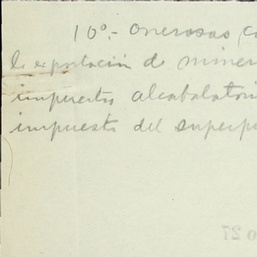 10º.- Onerosas, co
la exportación de miner
impuestos alcabalatori
impuesto del superpr